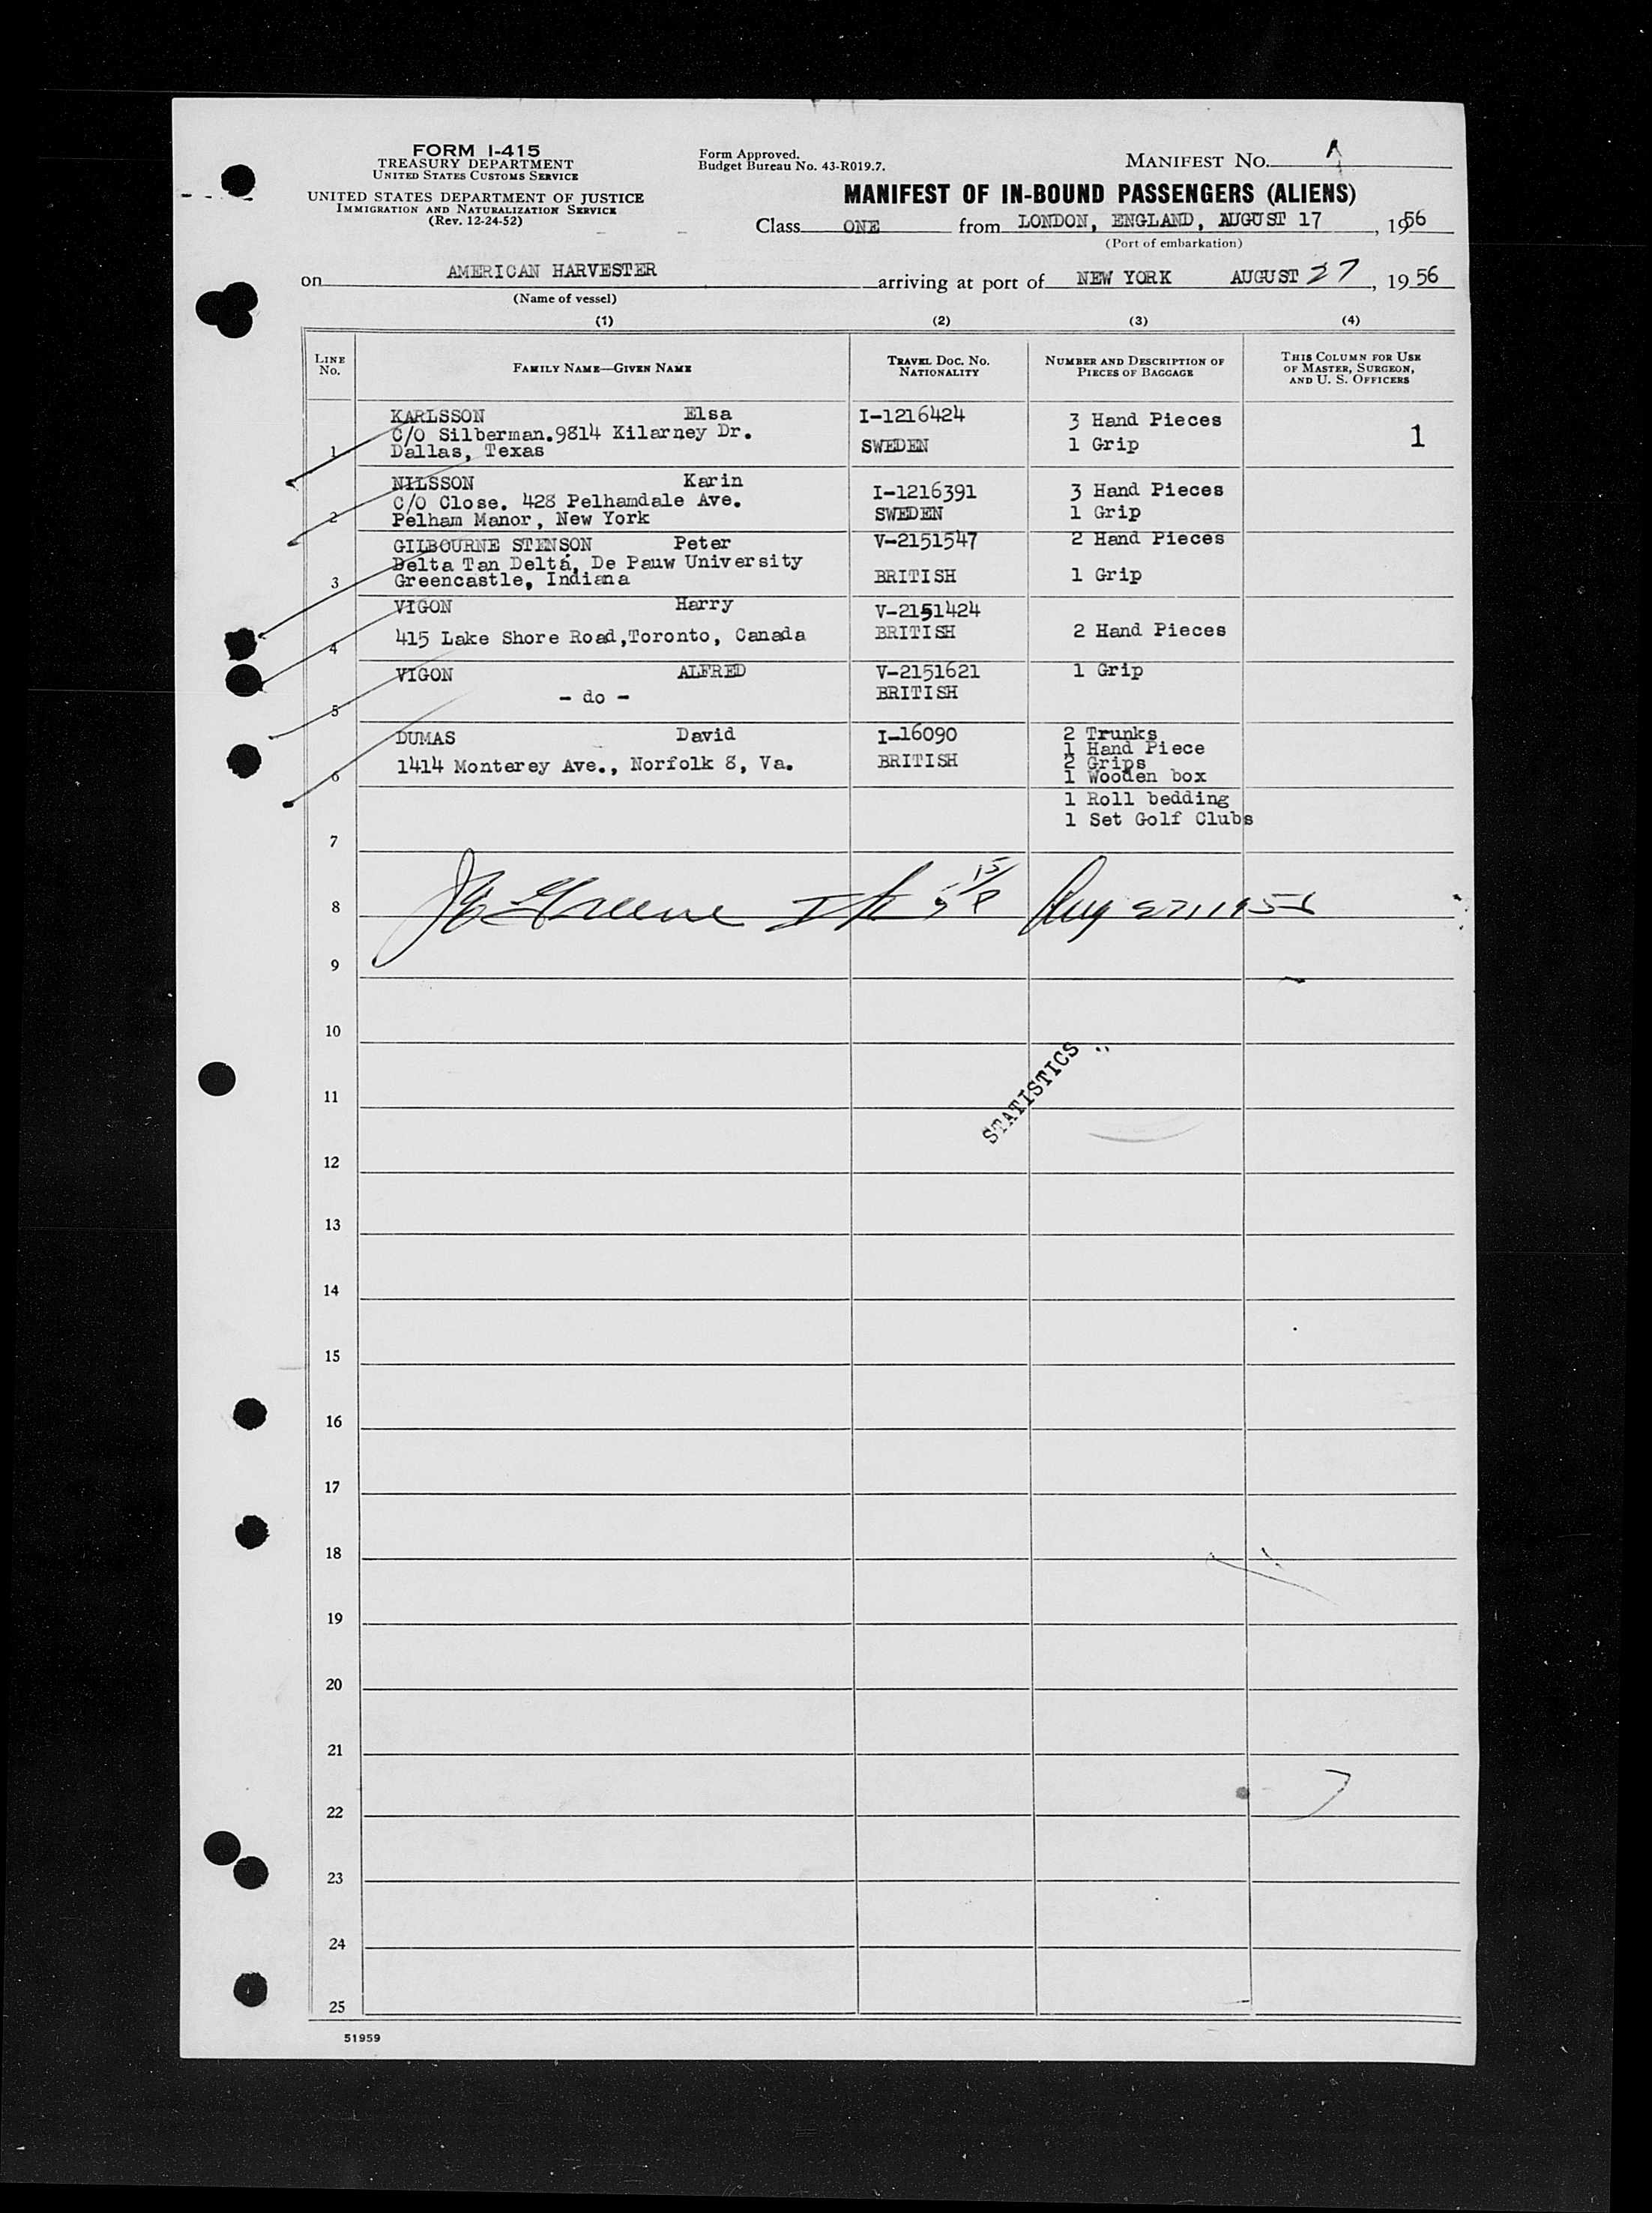 FORM I-415
TREASURY DEPARTMENT
UNITED STATES CUSTOMS SERVICE
UNITED STATES DEPARTMENT OF JUSTICE
IMMIGRATION AND NATURALIZATION SERVICE
(Rev. 12-24-52)
Form Approved.
Budget Bureau No. 43-R019.7.
MANIFEST NO. A
MANIFEST OF IN-BOUND PASSENGERS (ALIENS)
Class ONE from LONDON, ENGLAND, AUGUST 17, 1956
(Port of embarkation)
on AMERICAN HARVESTER arriving at port of NEW YORK AUGUST 27, 1956
(Name of vessel)
(1) (2) (3) (4)
LINE No. FAMILY NAME—GIVEN NAME TRAVEL DOC. NO. NATIONALITY NUMBER AND DESCRIPTION OF PIECES OF BAGGAGE THIS COLUMN FOR USE OF MASTER, SURGEON, AND U. S. OFFICERS
KARLSSON Elsa I-1216424 3 Hand Pieces
C/O Silberman.9814 Kilarney Dr. 1
1 Dallas, Texas SWEDEN 1 Grip
NILSSON Karin I-1216391 3 Hand Pieces
C/O Close. 428 Pelhamdale Ave.
2 Pelham Manor, New York SWEDEN 1 Grip
GILBOURNE STENSON Peter V-2151547 2 Hand Pieces
Delta Tan Delta, De Pauw University
3 Greencastle, Indiana BRITISH 1 Grip
VIGON Harry V-2151424
4 415 Lake Shore Road,Toronto, Canada BRITISH 2 Hand Pieces
VIGON ALFRED V-2151621 1 Grip
5 - do - BRITISH
DUMAS David I-16090 2 Trunks
1 Hand Piece
6 1414 Monterey Ave., Norfolk 8, Va. BRITISH 2 Grips
1 Wooden box
1 Roll bedding
1 Set Golf Clubs
7
8 Greene Aug 27, 1956
9
10
STATISTICS
11
12
13
14
15
16
17
18
19
20
21
22
23
24
25
51959